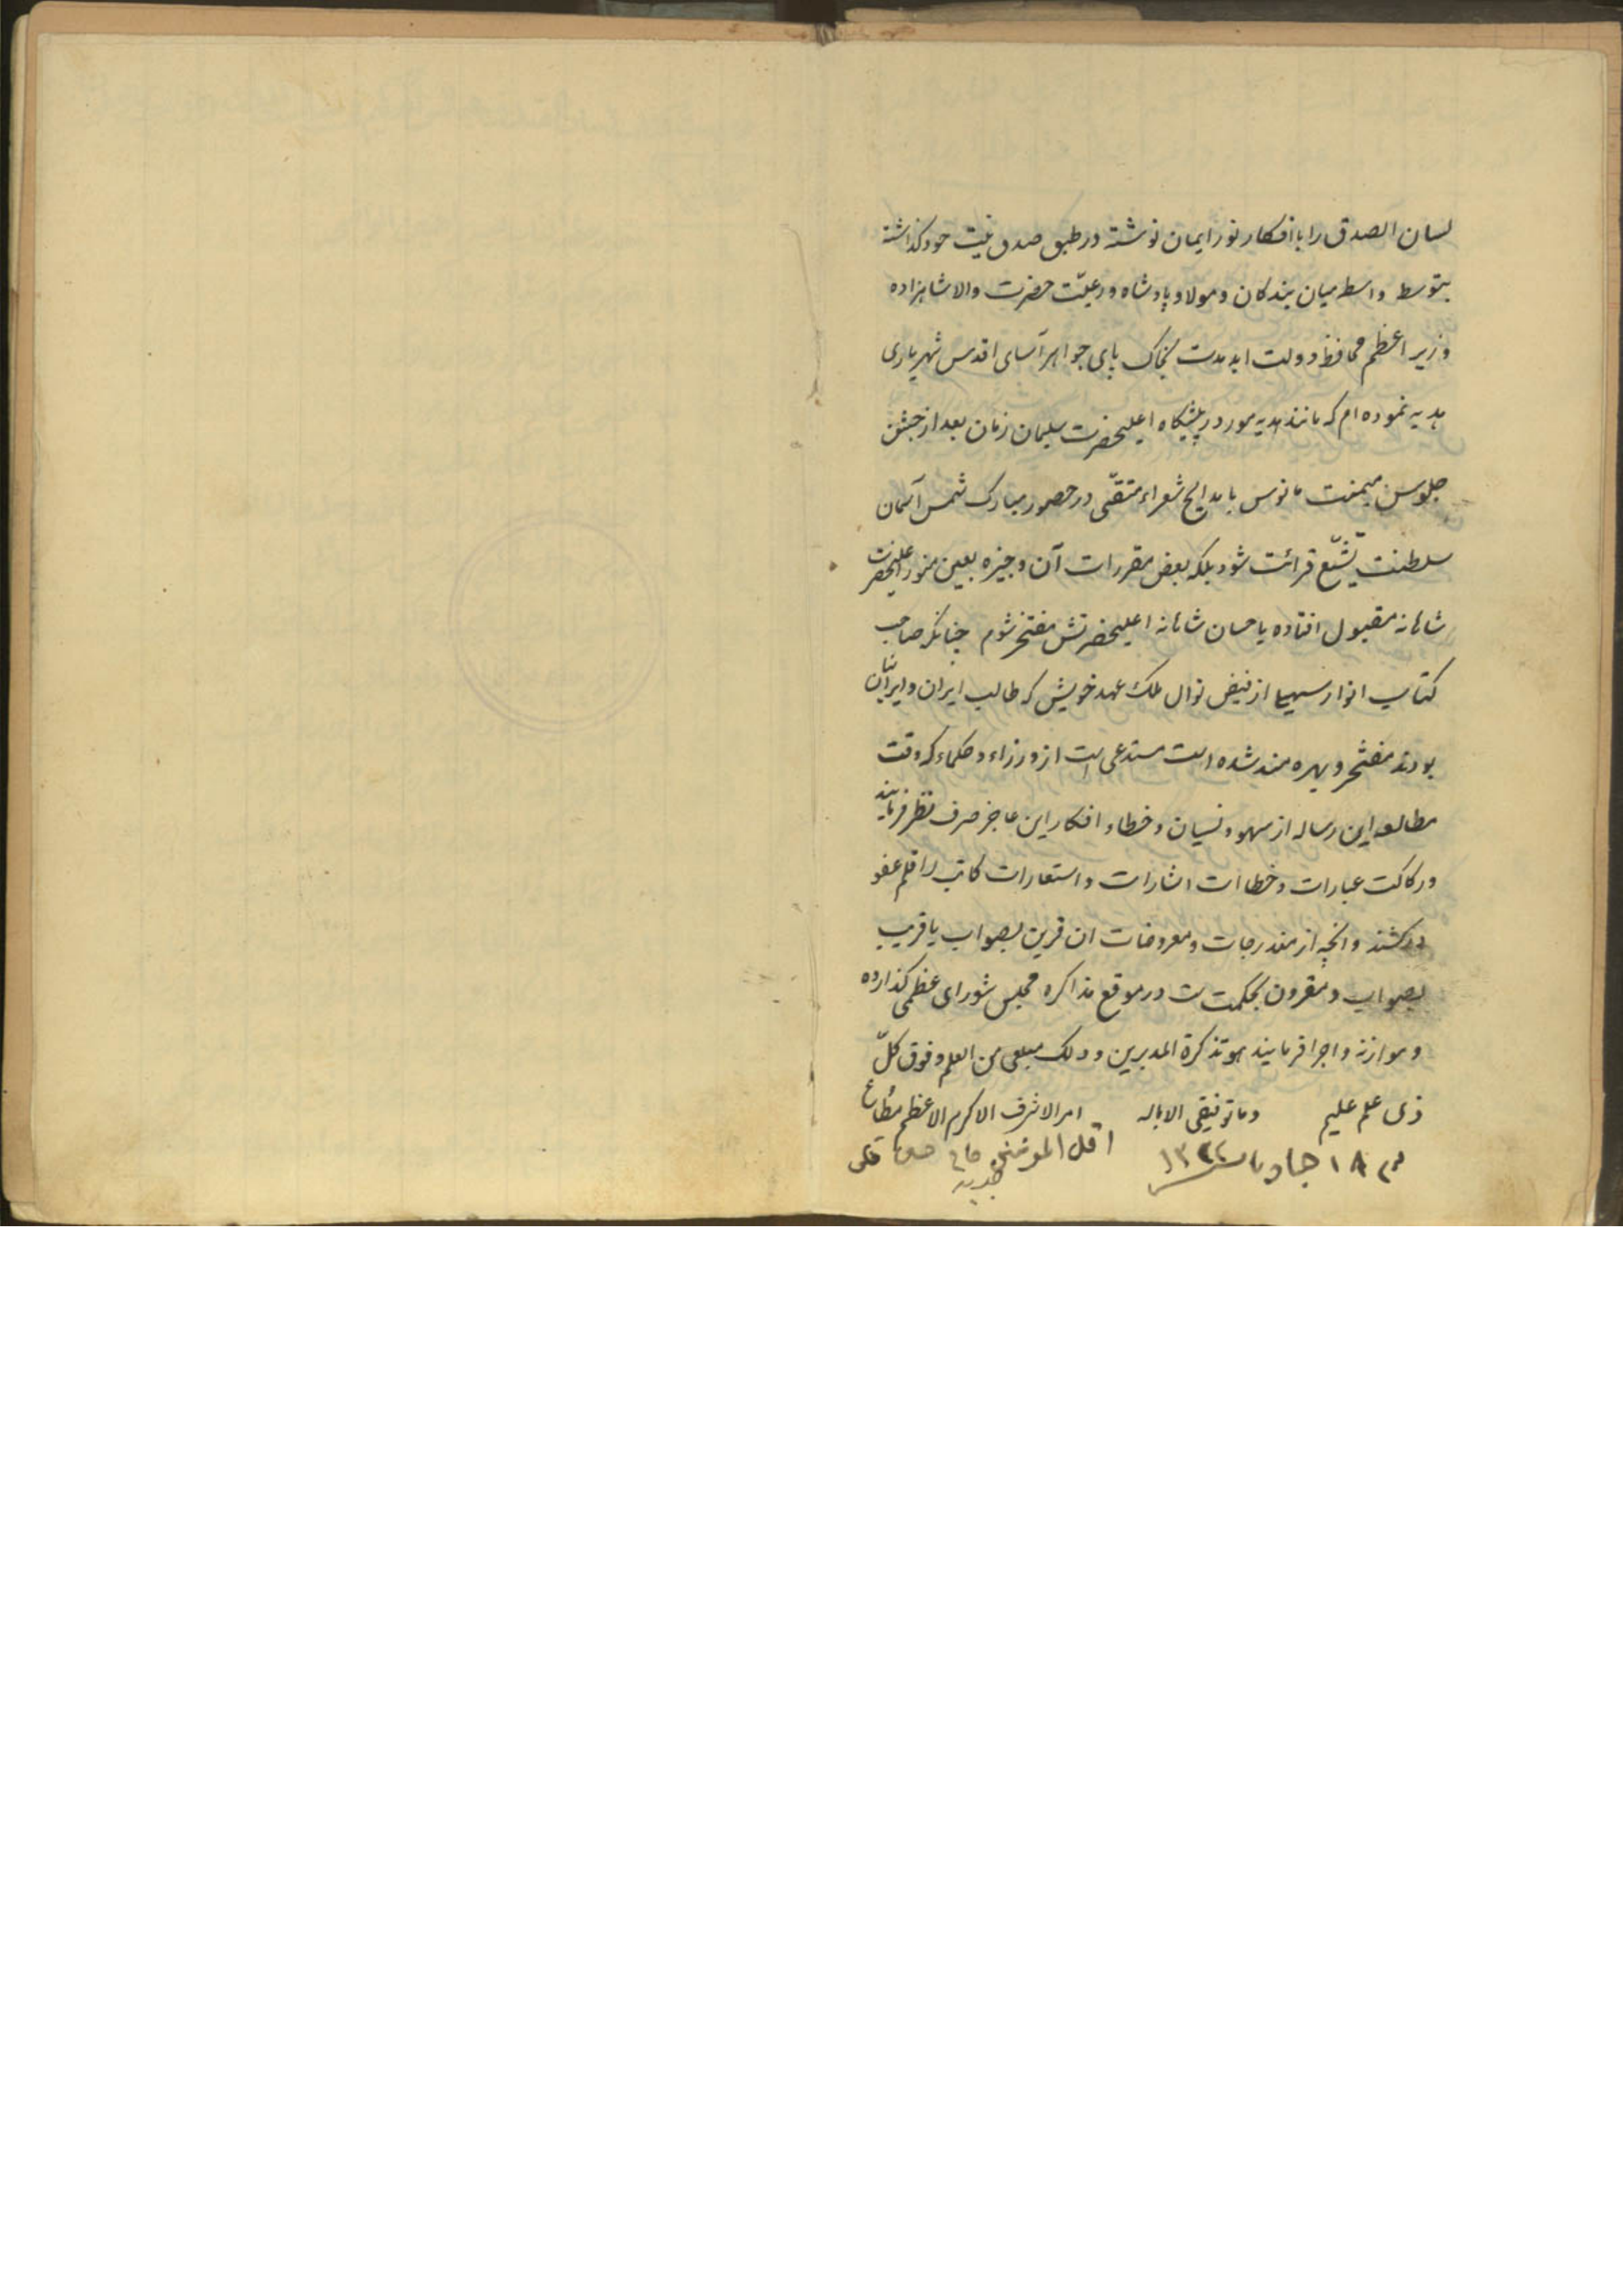 لسان الصدق را با افکار نور ایمان نوشته در طبق صدق نیت خود گذاشته
بتوسط واسطه میان بندگان و مولا و پادشاه و رعیّت حضرت والا شاهزاده
وزیر اعظم محافظ دولت ابد مدت بخاک پای جواهر آسای اقدس شهریاری
هدیه نموده ام که مانند هدیه مور در پیشگاه اعلیحضرت سلیمان زمان بعد از جشن
جلوس میمنت مانوس با مدایح شعراء متقّی در حضور مبارک شمس آسمان
سلطنت تشیّع قرائت شود بلکه بعض مقررات آن وجیزه بعین منور اعلیحضرت
شاهانه مقبول افتاده باحسان شاهانه اعلیحضرتش مفتخر شوم چنانکه صاحب
کتاب انوار سهیلی از فیض نوال ملک عهد خویش که طالب ایران و ایرانیان
بودند مفتخر و بهره مند شده است مستدعی است از وزراء و حکماء که وقت
مطالعه این رساله از سهو و نسیان و خطاء افکار این عاجز صرف نظر فرمایند
و رکاکت عبارات و خطاات اشارات و استعارات کاتب را قلم عفو
درکشند و انچه از مندرجات و معروضات ان قرین بصواب یا قریب
بصواب و مقرون بحکمت است در موقع مذاکره مجلس شورای عظمی گذارده
و موازنه و اجرا فرمایند هو تذکرة المدبرین و ذلک مبلغی من العلم و فوق کلّ
ذی علم علیم و ما توفیقی الا بالله امر الاشرف الاکرم الاعظم مُطاع
۱۸ جماد ۱۳۲۲ اقل